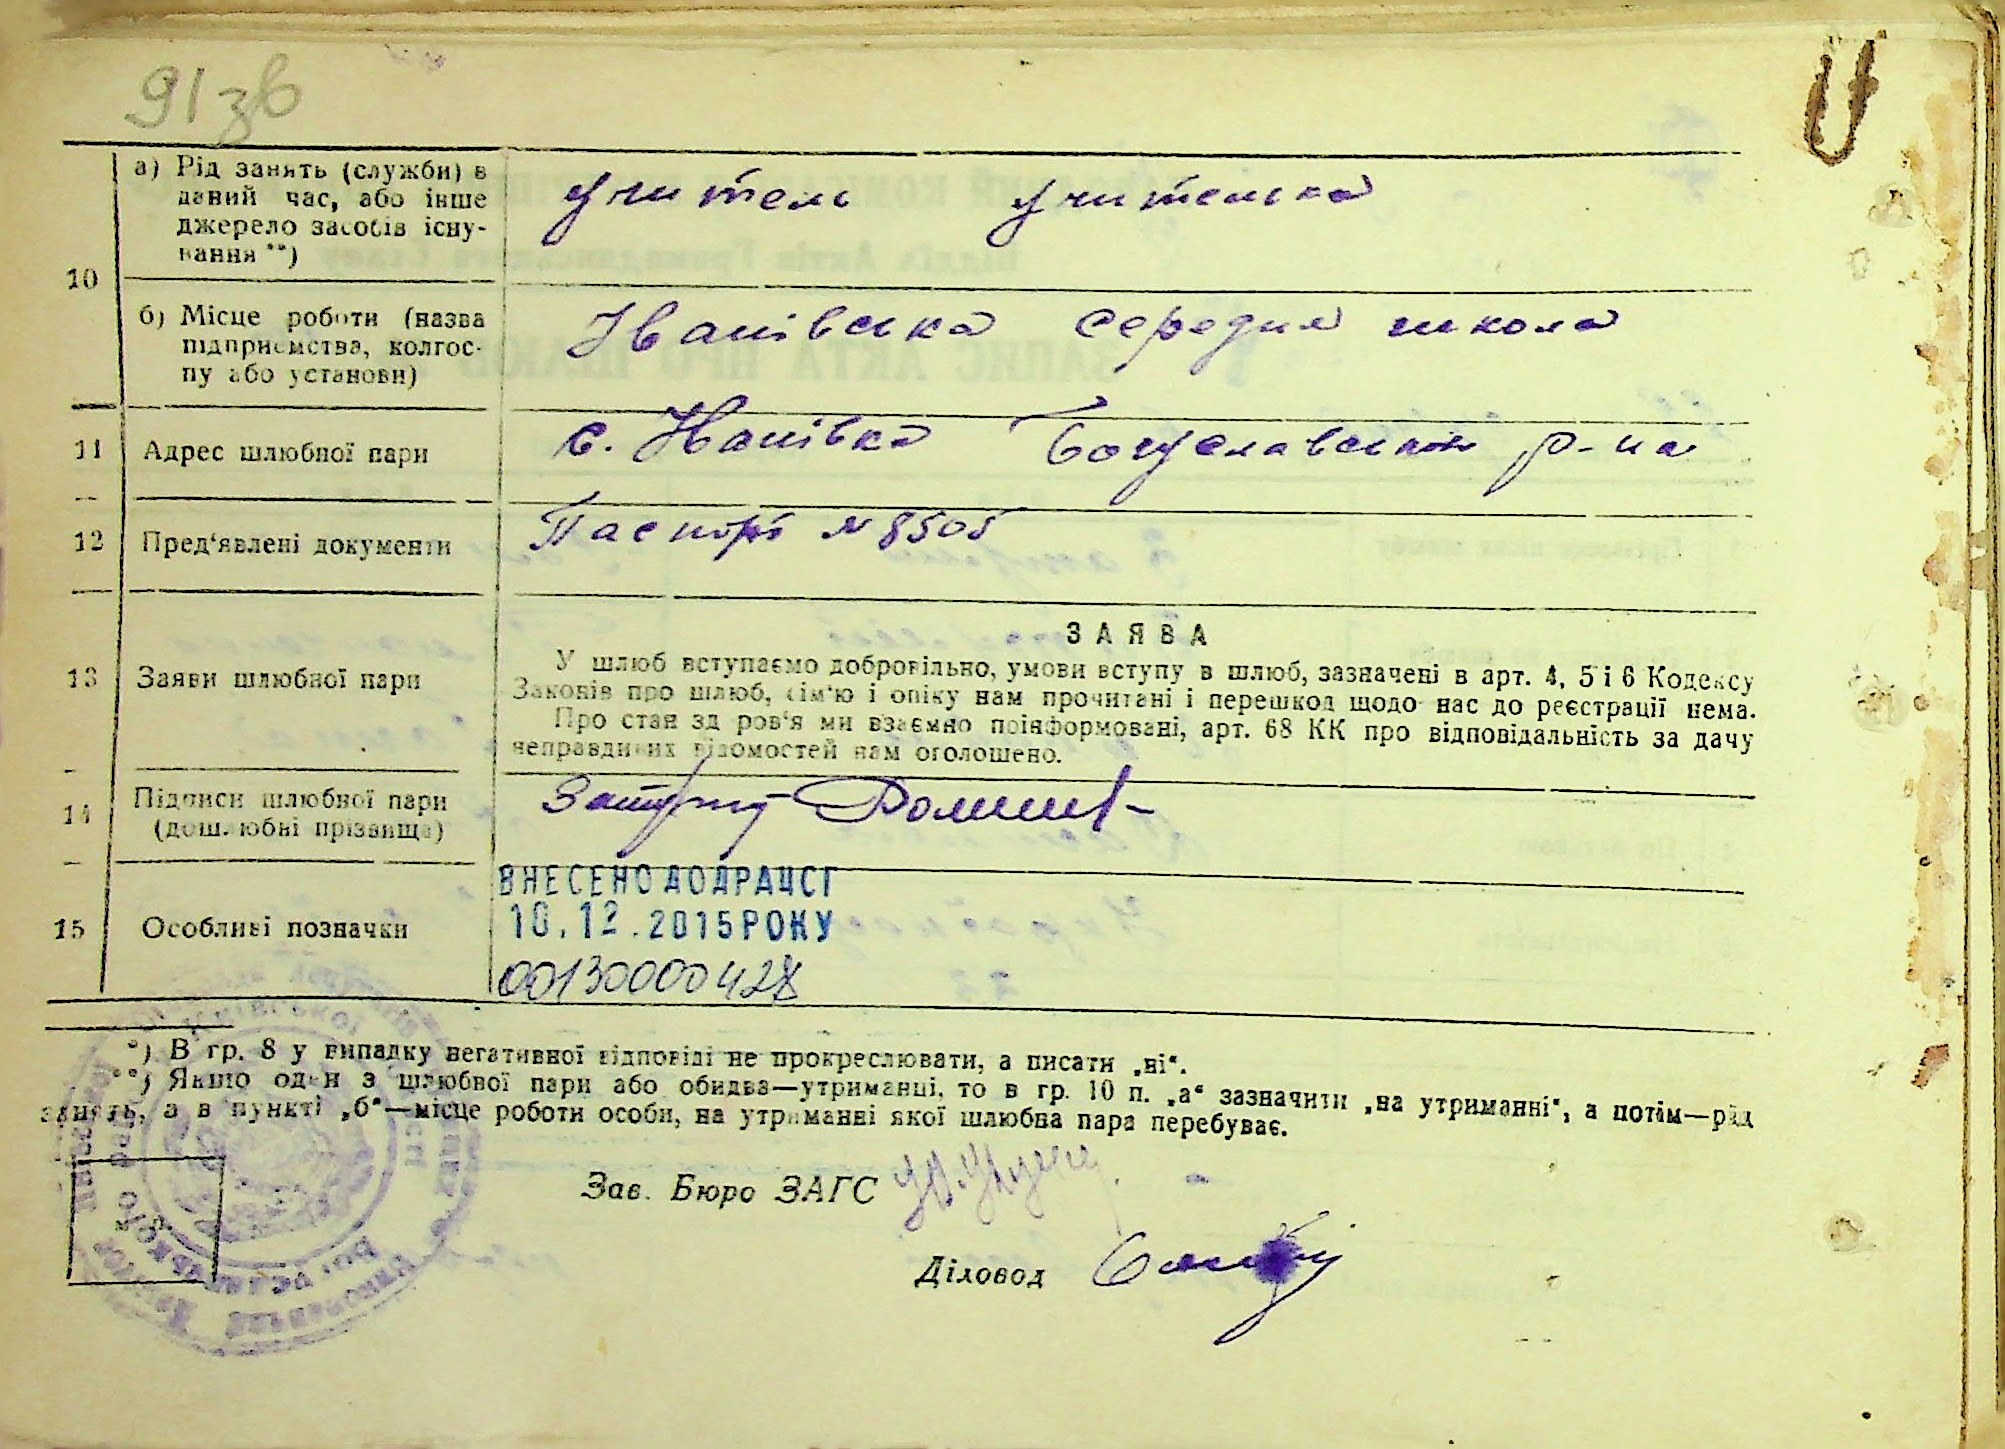 91зв
а) Рід занять (служби) в
даний час, або інше
джерело засобів існу-
вання **)
учитель учителька
10
б) Місце роботи (назва
підприємства, колгос-
пу або установи)
Іванівська середня школа
11 Адрес шлюбної пари с. Іванівка Богуславський р-на
12 Пред'явлені документи Паспорт № 8505
13 Заяви шлюбної пари
ЗАЯВА
У шлюб вступаємо добровільно, умови вступу в шлюб, зазначені в арт. 4, 5 і 6 Кодексу
Законів про шлюб, сім'ю і опіку нам прочитані і перешкод щодо нас до реєстрації нема.
Про стан здоров'я ми взаємно поінформовані, арт. 68 КК про відповідальність за дачу
неправдивих відомостей нам оголошено.
14 Підписи шлюбної пари
(дошлюбні прізвища)
ВНЕСЕНО ДО ДРАЦСГ
10.12.2015 РОКУ
15 Особливі позначки
00130000428
*) В гр. 8 у випадку негативної відповіді не прокреслювати, а писати „ні“.
**) Якщо один з шлюбної пари або обидва—утриманці, то в гр. 10 п. „а“ зазначити „на утриманні“, а потім—рід
занять, а в пункті „б“—місце роботи особи, на утриманні якої шлюбна пара перебуває.
Зав. Бюро ЗАГС
Діловод